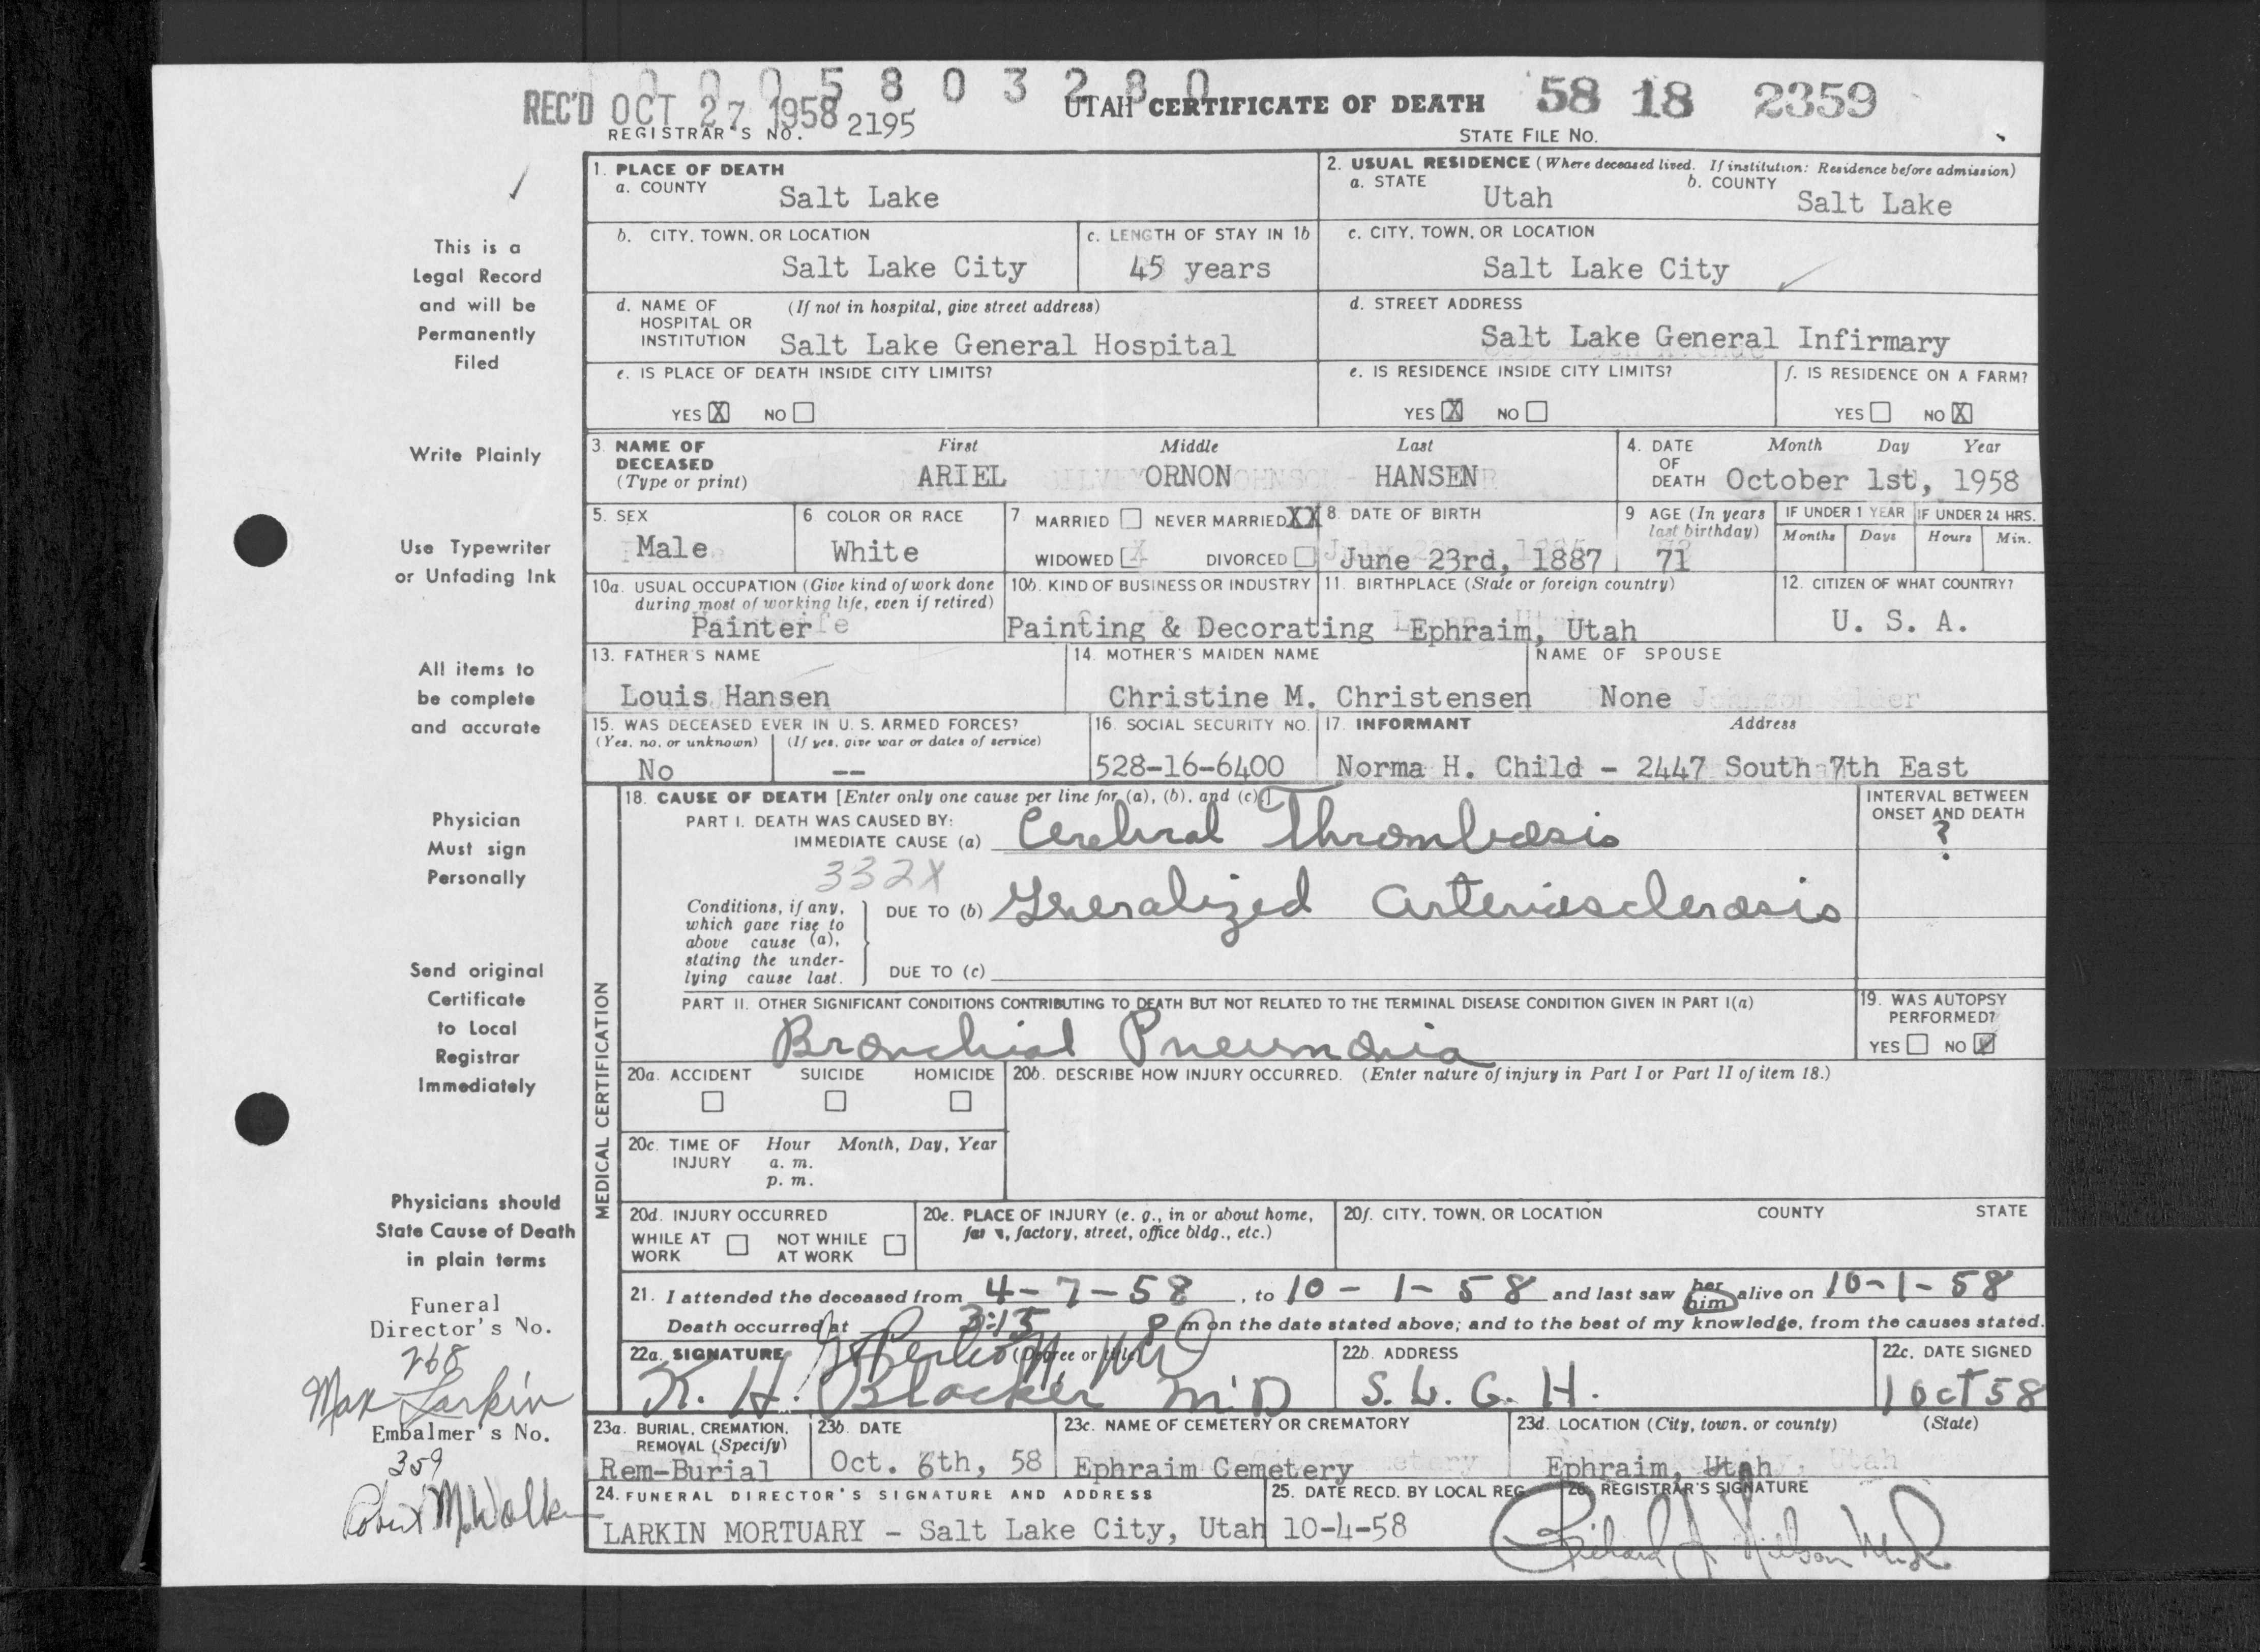 0 0 0 5 8 0 3 2 8 0
REC'D OCT 27 1958 UTAH CERTIFICATE OF DEATH 58 18 2359
REGISTRAR'S NO. 2195 STATE FILE NO.
This is a
Legal Record
and will be
Permanently
Filed
Write Plainly
Use Typewriter
or Unfading Ink
All items to
be complete
and accurate
Physician
Must sign
Personally
Send original
Certificate
to Local
Registrar
Immediately
Physicians should
State Cause of Death
in plain terms
Funeral
Director's No.
268
Max Larkin
Embalmer's No.
359
Robert M. Walk
1. PLACE OF DEATH
a. COUNTY Salt Lake
2. USUAL RESIDENCE (Where deceased lived. If institution: Residence before admission)
a. STATE Utah b. COUNTY Salt Lake
b. CITY, TOWN, OR LOCATION Salt Lake City
c. LENGTH OF STAY IN 1b 45 years
c. CITY, TOWN, OR LOCATION Salt Lake City
d. NAME OF (If not in hospital, give street address)
HOSPITAL OR
INSTITUTION Salt Lake General Hospital
d. STREET ADDRESS
Salt Lake General Infirmary
e. IS PLACE OF DEATH INSIDE CITY LIMITS?
YES X NO
e. IS RESIDENCE INSIDE CITY LIMITS?
YES X NO
f. IS RESIDENCE ON A FARM?
YES NO X
3. NAME OF First Middle Last
DECEASED
(Type or print) ARIEL ORNON HANSEN
4. DATE Month Day Year
OF
DEATH October 1st, 1958
5. SEX
Male
6 COLOR OR RACE
White
7 MARRIED NEVER MARRIED XX
WIDOWED DIVORCED
8. DATE OF BIRTH
June 23rd, 1887
9 AGE (In years
last birthday)
71
IF UNDER 1 YEAR
Months Days
IF UNDER 24 HRS.
Hours Min.
10a. USUAL OCCUPATION (Give kind of work done
during most of working life, even if retired)
Painter
10b. KIND OF BUSINESS OR INDUSTRY
Painting & Decorating
11. BIRTHPLACE (State or foreign country)
Ephraim, Utah
12. CITIZEN OF WHAT COUNTRY?
U. S. A.
13. FATHER'S NAME
Louis Hansen
14. MOTHER'S MAIDEN NAME
Christine M. Christensen
NAME OF SPOUSE
None
15. WAS DECEASED EVER IN U. S. ARMED FORCES?
(Yes, no, or unknown) (If yes, give war or dates of service)
No --
16. SOCIAL SECURITY NO.
528-16-6400
17. INFORMANT Address
Norma H. Child - 2447 South 7th East
MEDICAL CERTIFICATION
18. CAUSE OF DEATH [Enter only one cause per line for (a), (b), and (c).]
PART I. DEATH WAS CAUSED BY:
IMMEDIATE CAUSE (a) Cerebral Thrombosis
INTERVAL BETWEEN
ONSET AND DEATH
?
332X
Conditions, if any,
which gave rise to
above cause (a),
stating the under-
lying cause last.
DUE TO (b) Generalized arteriosclerosis
DUE TO (c)
PART II. OTHER SIGNIFICANT CONDITIONS CONTRIBUTING TO DEATH BUT NOT RELATED TO THE TERMINAL DISEASE CONDITION GIVEN IN PART I(a)
Bronchial Pneumonia
19. WAS AUTOPSY
PERFORMED?
YES NO
20a. ACCIDENT SUICIDE HOMICIDE
20b. DESCRIBE HOW INJURY OCCURRED. (Enter nature of injury in Part I or Part II of item 18.)
20c. TIME OF Hour Month, Day, Year
INJURY a. m.
p. m.
20d. INJURY OCCURRED
WHILE AT NOT WHILE
WORK AT WORK
20e. PLACE OF INJURY (e. g., in or about home,
factory, street, office bldg., etc.)
20f. CITY, TOWN, OR LOCATION COUNTY STATE
21. I attended the deceased from 4-7-58, to 10-1-58 and last saw her him alive on 10-1-58
Death occurred at 3:15 P m on the date stated above; and to the best of my knowledge, from the causes stated.
22a. SIGNATURE (Degree or title)
K. H. Blacker M.D
22b. ADDRESS
S. L. G. H.
22c. DATE SIGNED
1 Oct 58
23a. BURIAL, CREMATION,
REMOVAL (Specify)
Rem-Burial
23b. DATE
Oct. 6th, 58
23c. NAME OF CEMETERY OR CREMATORY
Ephraim Cemetery
23d. LOCATION (City, town, or county) (State)
Ephraim, Utah
24. FUNERAL DIRECTOR'S SIGNATURE AND ADDRESS
LARKIN MORTUARY - Salt Lake City, Utah
25. DATE RECD. BY LOCAL REG.
10-4-58
26. REGISTRAR'S SIGNATURE